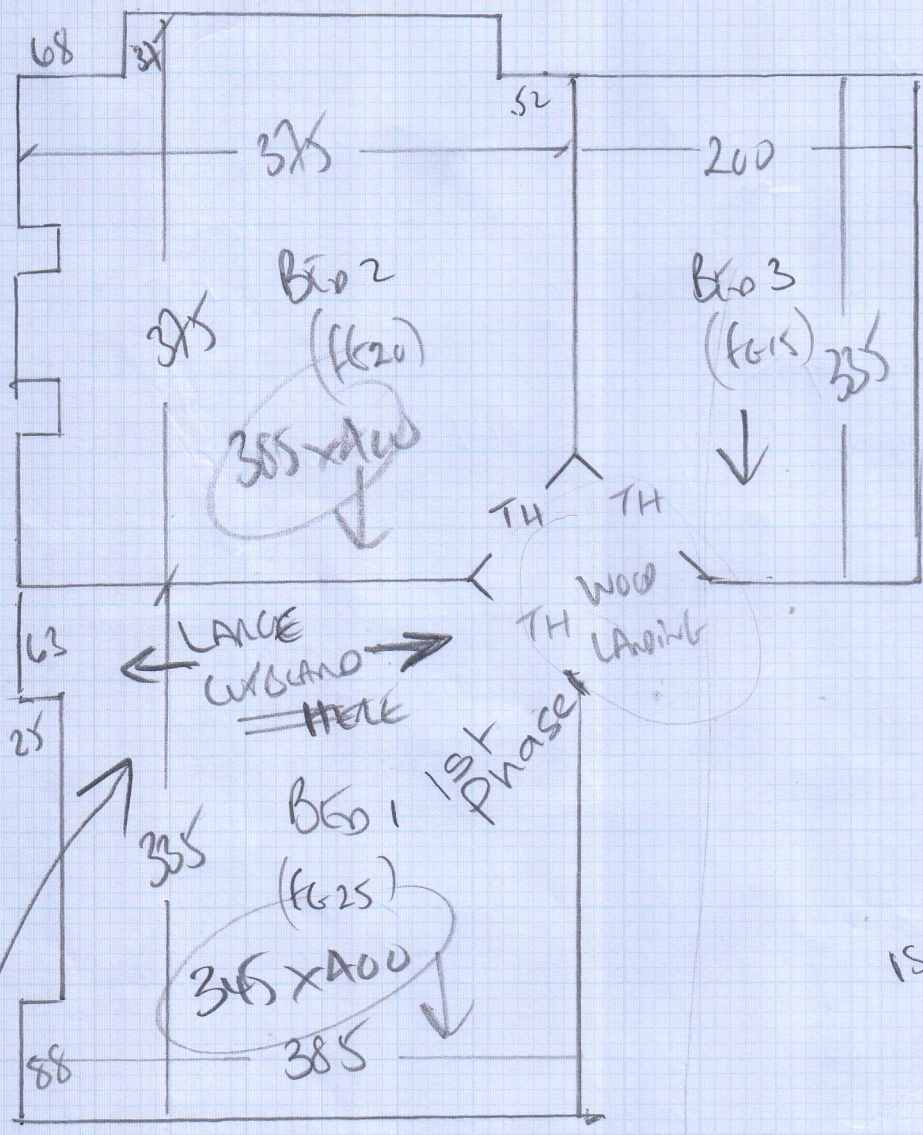 68
37
52
375
200
BED 2
(FG20)
375
385 x 400
BED 3
(FG15)
335
TH
TH
TH
WOOD
LANDING
63
LARGE
CUPBOARD
HERE
25
1st
Phase
BED 1
335
(FG25)
345 x 400
385
88